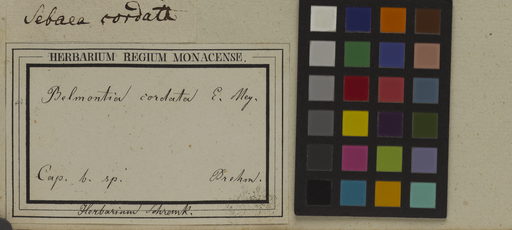 Sebaea cordata
HERBARIUM REGIUM MONACENSE.
Belmontia cordata E. Mey.
Cap. b. sp. Brehm.
Herbarium Schrenk.